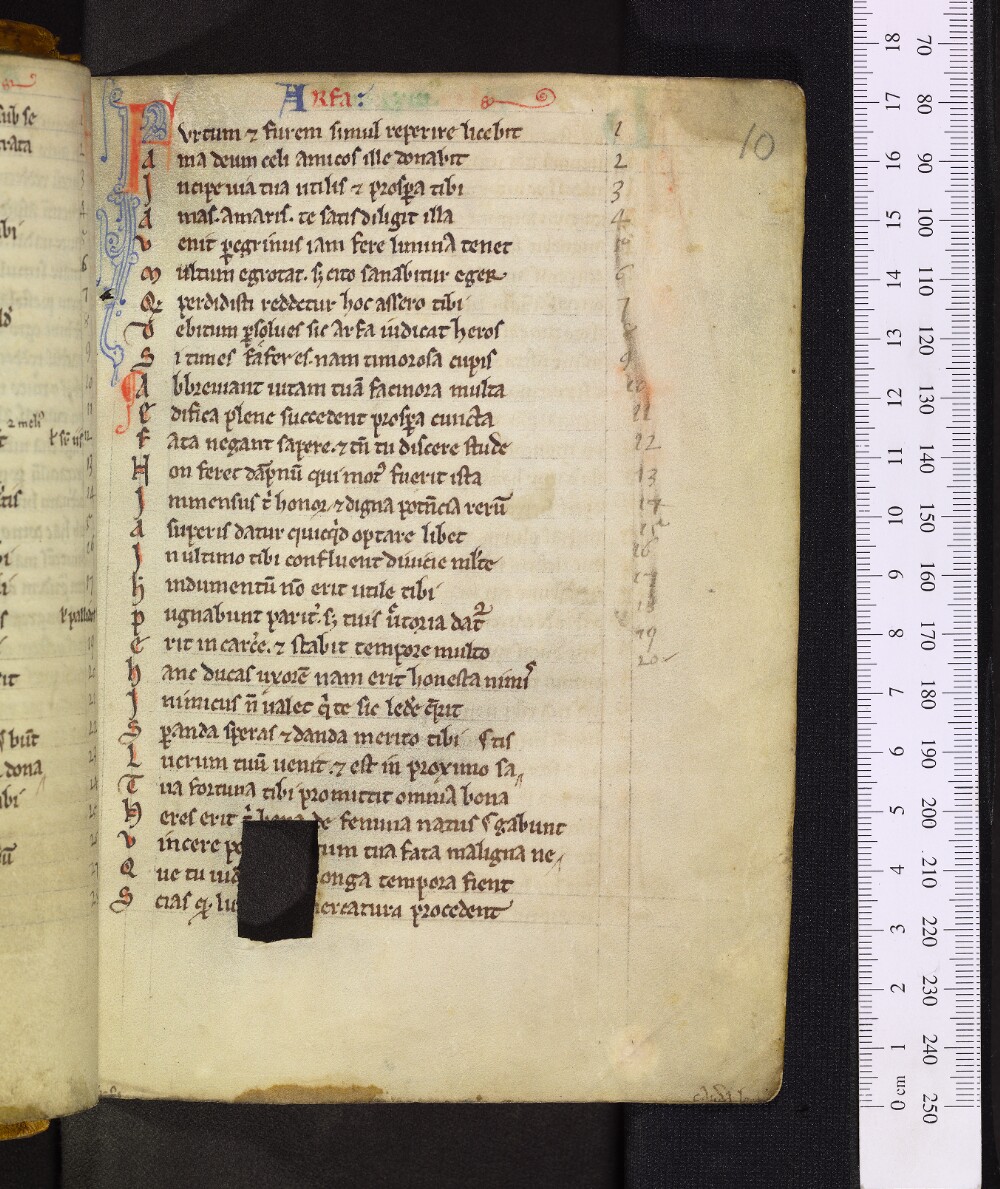 Arfa:
10
Furtum ⁊ furem simul reperire licebit 1
ama deum celi amicos ille donabit 2
Incipe uia tua utilis ⁊ prospa tibi 3
amas. Amaris. te satis diligit illa 4
venit pegrinus iam fere limina tenet
multum egrotat. s; cito sanabitur eger 6
Q perdidisti reddetur hoc assero tibi 7
debitum psolues sic Arfa iudicat heros
Si times nam timorosa cupis 9
Abbreuiant uitam tuā facinora multa 10
Edifica plene succedent prospa cuncta 11
Fata negant sapere. ⁊ tn̄ tu discere stude 12
Non feret dāpnū qui mot᷒ fuerit ista 13
Immensus honor ⁊ digna potn̄cia rerū 14
a superis datur quicq̇d optare libet 15
In ultimo tibi confluent diuicie mlt̄e 16
hindumentū nō erit utile tibi 17
pugnabunt parit̄. s; tuis uc̄toria dat᷑ 18
erit in carc̄e. ⁊ stabit tempore multo 19
hanc ducas uxorē nam erit honesta nimis 20
Inimicus n̄ ualet q̇ te sic ledē q̄rit
Spanda speras ⁊ danda merito tibi
Lucrum tuū uenit. ⁊ est in proximo
Tua fortuna tibi promittit omnia bona
Heres erit de femina natus
vincere tua fata maligna
Que tu longa tempora fient
Scias mercatura procedent